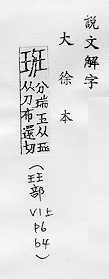 說文解字
大徐本
班 分瑞玉从玨
从刀布還切
(玨部 V1上 P6 b4)